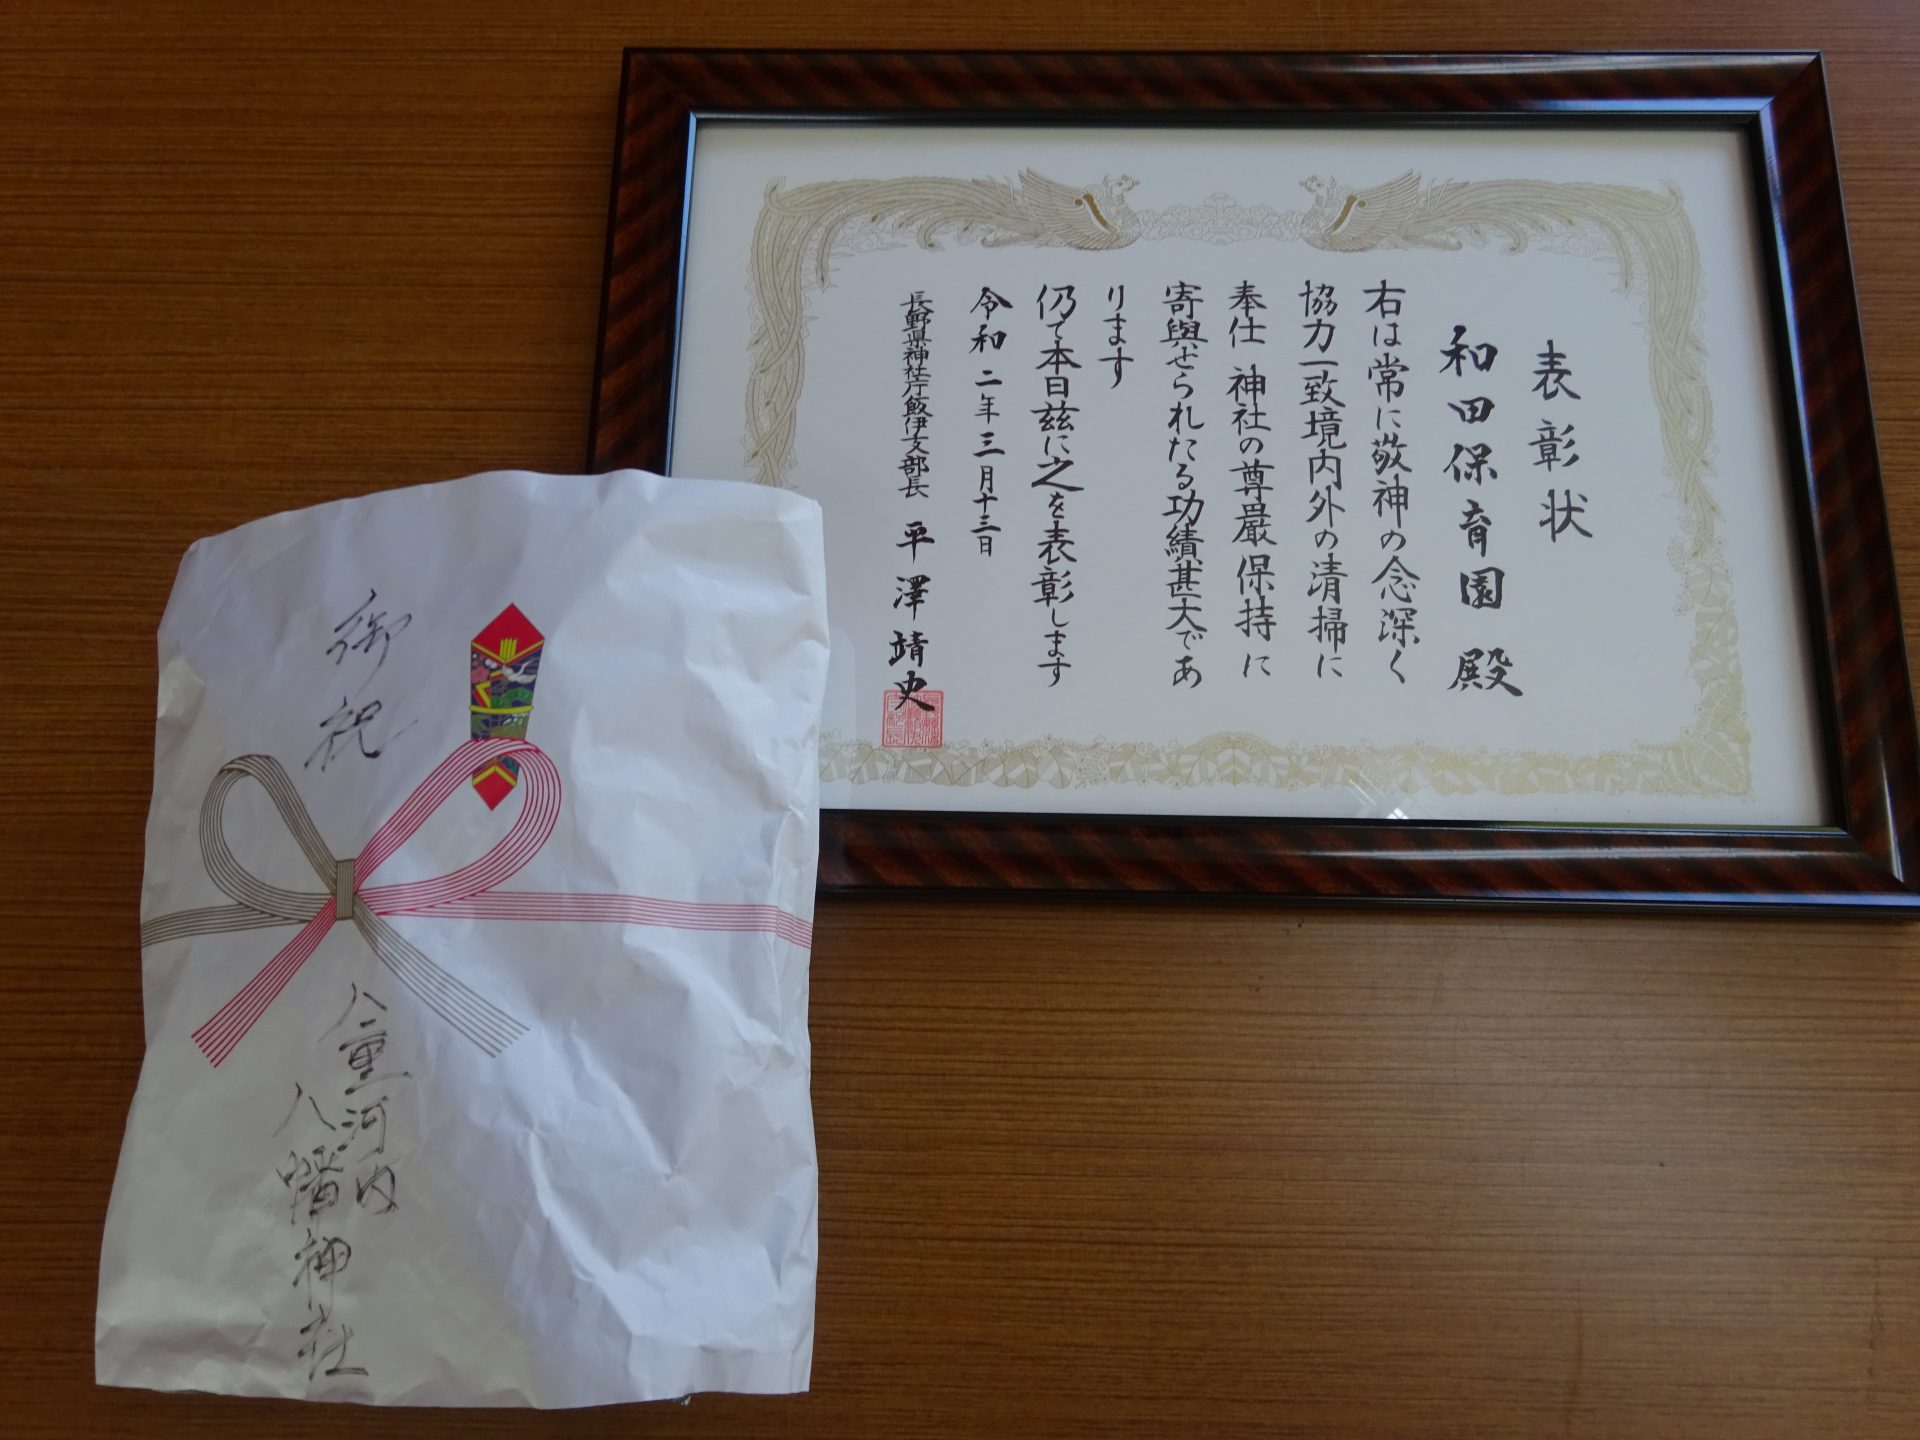 表彰状
和田保育園 殿
右は常に敬神の念深く
協力一致境内外の清掃に
奉仕 神社の尊厳保持に
寄與せられたる功績甚大であ
ります
仍て本日玆に之を表彰します
令和二年三月十三日
長野県神社庁飯伊支部長 平澤靖史
御祝
八重河内
八幡神社